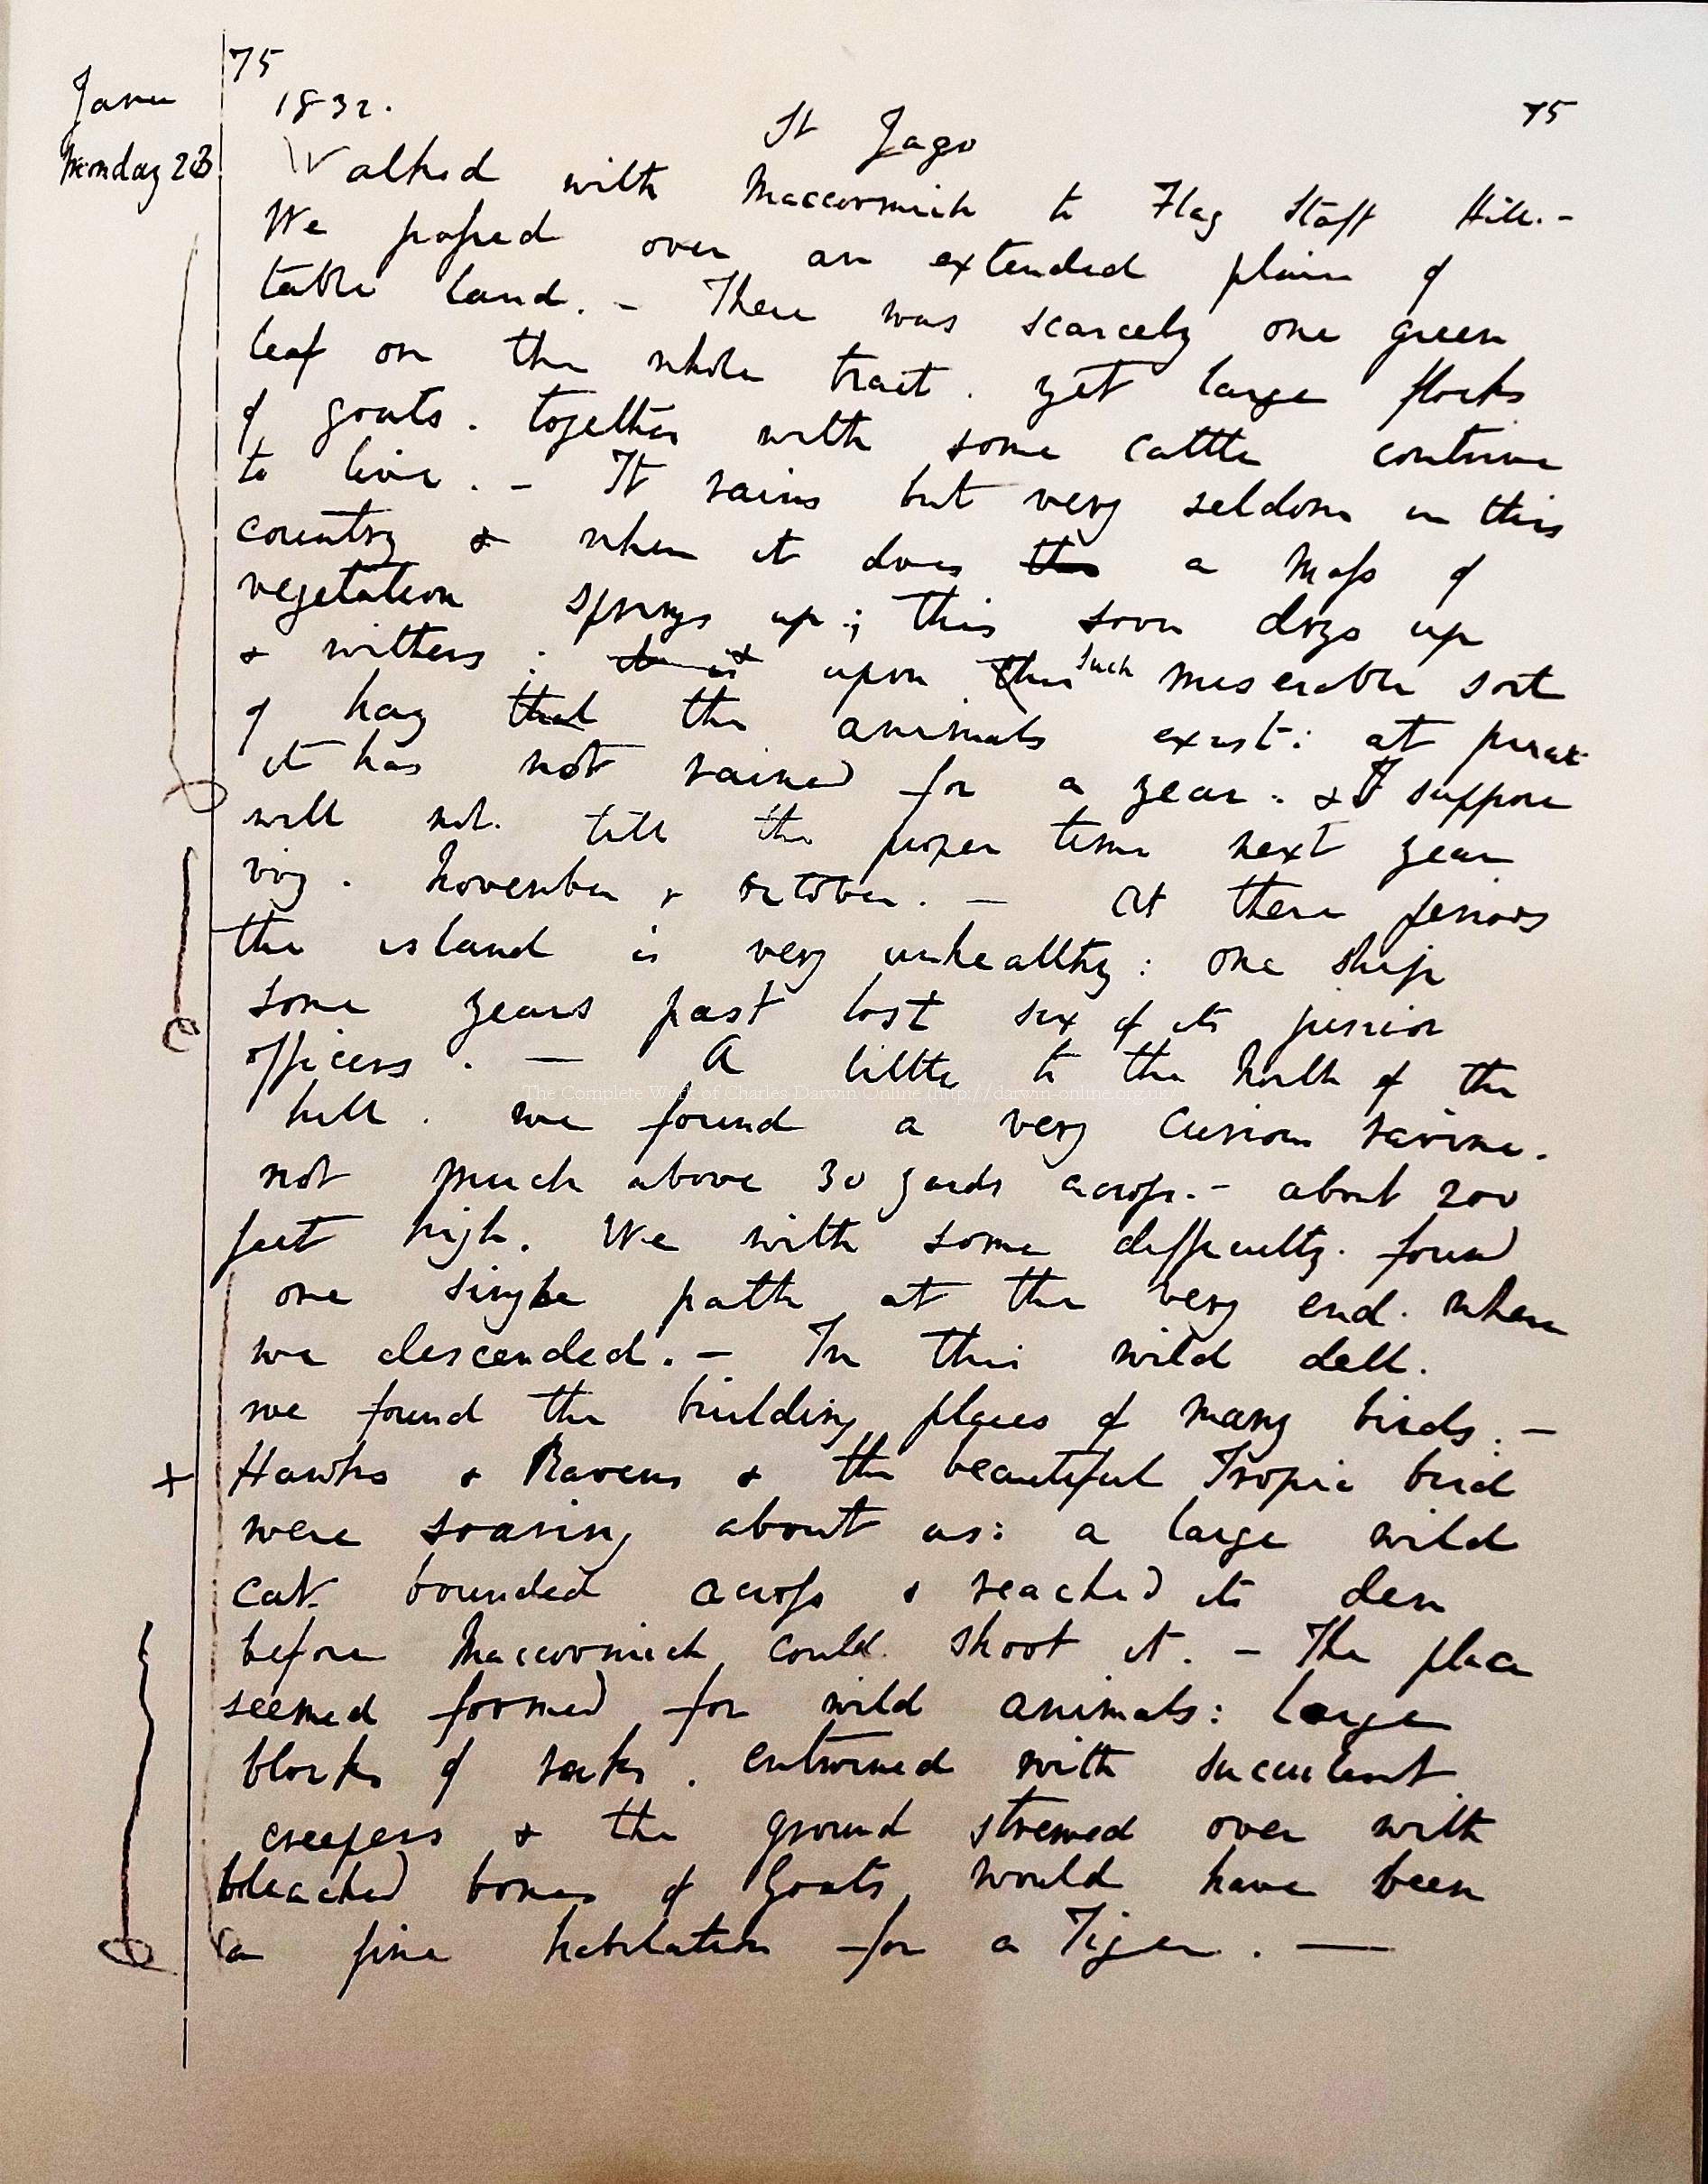 75
Janu 1832. St Jago 75
Monday 23 Walked with Maccormick to Flag Staff Hill. -
We passed over an extended plain of
table land. - There was scarcely one green
leaf on the whole tract. yet large flocks
of goats. together with some cattle contrive
to live. - It rains but very seldom in this
country & when it does a mass of
vegetation springs up; this soon drys up
& withers: & upon this such miserable sort
of hay that the animals exist: at present
it has not rained for a year. & I suppose
will not. till the proper time next year
viz. November & October. - At these periods
the island is very unhealthy: one ship
some years past lost six of its junior
officers. — A little to the North of the
hill. we found a very curious ravine.
not much above 30 yards across. - about 200
feet high. We with some difficulty. found
one single path at the very end. where
we descended. - In this wild dell.
we found the building places of many birds. -
+ Hawks & Ravens & the beautiful Tropic bird
were soaring about us: a large wild
cat bounded across & reached its den
before Maccormick could shoot it. - The place
seemed formed for wild animals: large
blocks of rocks. entwined with succulent
creepers & the ground strewed over with
bleached bones of Goats, would have been
a fine habitation for a Tiger. —
The Complete Work of Charles Darwin Online (http://darwin-online.org.uk/)